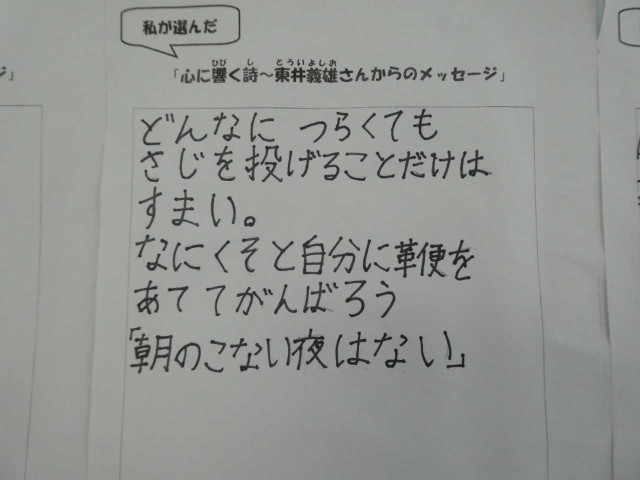 私が選んだ
「心に響く詩～東井義雄さんからのメッセージ」
どんなに つらくても
さじを投げることだけは
すまい。
なにくそと自分に革便を
あててがんばろう
「朝のこない夜はない」